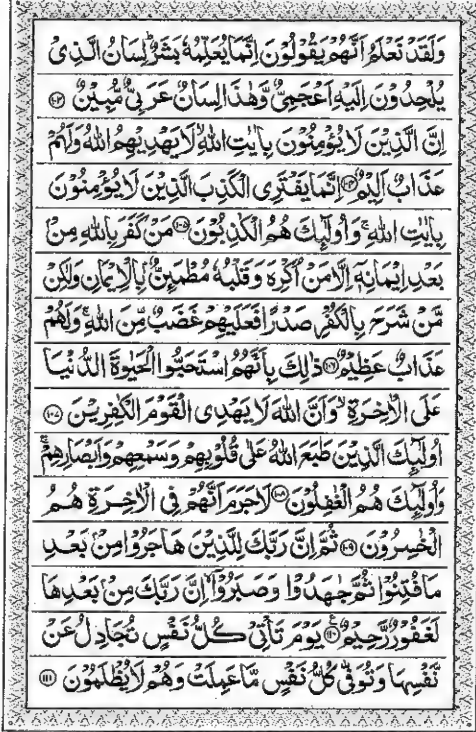 وَلَقَدْ نَعْلَمُ اَنَّهُمْ يَقُوْلُوْنَ اِنَّمَا يُعَلِّمُهٗ بَشَرٌ ؕ لِسَانُ الَّذِىْ
يُلْحِدُوْنَ اِلَيْهِ اَعْجَمِىٌّ وَّهٰذَا لِسَانٌ عَرَبِىٌّ مُّبِيْنٌ ۝۱۰۳
اِنَّ الَّذِيْنَ لَا يُؤْمِنُوْنَ بِاٰيٰتِ اللّٰهِ ۙ لَا يَهْدِيْهِمُ اللّٰهُ وَلَهُمْ
عَذَابٌ اَلِيْمٌ ۝۱۰۴ اِنَّمَا يَفْتَرِى الْكَذِبَ الَّذِيْنَ لَا يُؤْمِنُوْنَ
بِاٰيٰتِ اللّٰهِ ۚ وَاُولٰٓئِكَ هُمُ الْكٰذِبُوْنَ ۝۱۰۵ مَنْ كَفَرَ بِاللّٰهِ مِنْۢ
بَعْدِ اِيْمَانِهٖۤ اِلَّا مَنْ اُكْرِهَ وَقَلْبُهٗ مُطْمَئِنٌّۢ بِالْاِيْمَانِ وَلٰكِنْ
مَّنْ شَرَحَ بِالْكُفْرِ صَدْرًا فَعَلَيْهِمْ غَضَبٌ مِّنَ اللّٰهِ ۚ وَلَهُمْ
عَذَابٌ عَظِيْمٌ ۝۱۰۶ ذٰلِكَ بِاَنَّهُمُ اسْتَحَبُّوا الْحَيٰوةَ الدُّنْيَا
عَلَى الْاٰخِرَةِ ۙ وَاَنَّ اللّٰهَ لَا يَهْدِى الْقَوْمَ الْكٰفِرِيْنَ ۝۱۰۷
اُولٰٓئِكَ الَّذِيْنَ طَبَعَ اللّٰهُ عَلٰى قُلُوْبِهِمْ وَسَمْعِهِمْ وَاَبْصَارِهِمْ ۚ
وَاُولٰٓئِكَ هُمُ الْغٰفِلُوْنَ ۝۱۰۸ لَا جَرَمَ اَنَّهُمْ فِى الْاٰخِرَةِ هُمُ
الْخٰسِرُوْنَ ۝۱۰۹ ثُمَّ اِنَّ رَبَّكَ لِلَّذِيْنَ هَاجَرُوْا مِنْۢ بَعْدِ
مَا فُتِنُوْا ثُمَّ جٰهَدُوْا وَصَبَرُوْۤا ۙ اِنَّ رَبَّكَ مِنْۢ بَعْدِهَا
لَغَفُوْرٌ رَّحِيْمٌ ۝۱۱۰ يَوْمَ تَاْتِىْ كُلُّ نَفْسٍ تُجَادِلُ عَنْ
نَّفْسِهَا وَتُوَفّٰى كُلُّ نَفْسٍ مَّا عَمِلَتْ وَهُمْ لَا يُظْلَمُوْنَ ۝۱۱۱